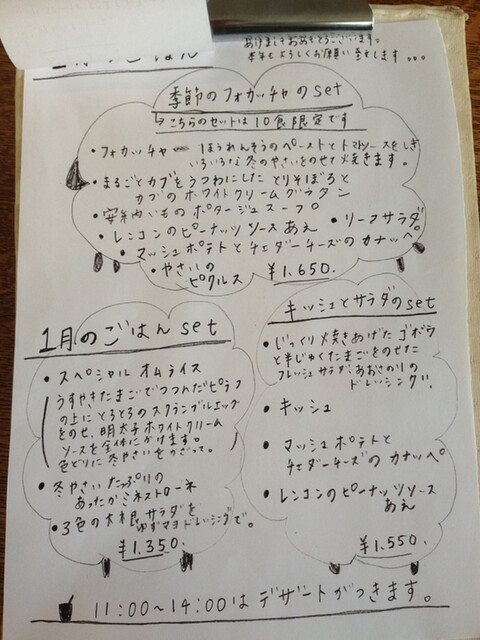 あけましておめでとうございます。
本年もよろしくお願い致します。。。
1月のごはん
季節のフォカッチャのset
→こちらのセットは10食限定です
・フォカッチャ ← ほうれんそうのペーストとトマトソースをしき
いろいろな冬のやさいをのせて焼きます。
・まるごとカブをうつわにした とりそぼろと
カブのホワイトクリームグラタン
・安納いものポタージュスープ
・レンコンのピーナッツソースあえ ・リーフサラダ
・マッシュポテトとチェダーチーズのカナッペ
・やさいの
ピクルス ¥1,650.
1月のごはんset
・スペシャルオムライス
うすやきたまごでつつんだピラフ
の上にとろとろのスクランブルエッグ
をのせ、明太子ホワイトクリーム
ソースを全体にかけます。
色どりに冬やさいをかざって。
・冬やさいたっぷりの
あったかミネストローネ
・3色の大根サラダを
ゆずマヨドレッシングで。
¥1,350.
キッシュとサラダのset
・じっくり焼きあげたゴボウ
と半じゅくたまごをのせた
フレッシュサラダ、あおさのりの
ドレッシング!!
・キッシュ
・マッシュポテトと
チェダーチーズのカナッペ
・レンコンのピーナッツソース
あえ
¥1,550.
11:00〜14:00はデザートがつきます。